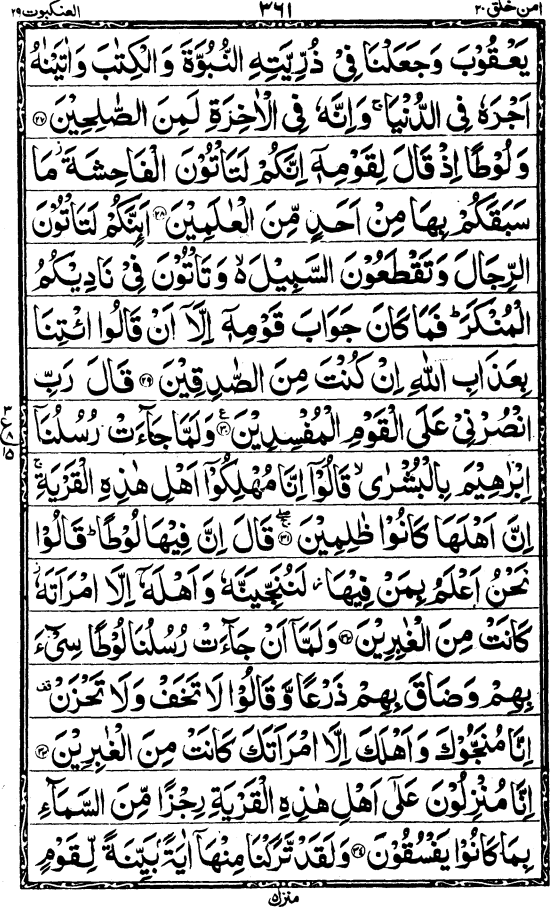 امن خلق ٢٠
٣٦١
العنكبوت ٢٩
يَعْقُوْبَ وَجَعَلْنَا فِيْ ذُرِّيَّتِهِ النُّبُوَّةَ وَالْكِتٰبَ وَاٰتَيْنٰهُ
اَجْرَهٗ فِي الدُّنْيَا ۚ وَاِنَّهٗ فِي الْاٰخِرَةِ لَمِنَ الصّٰلِحِيْنَ ﴿٢٧﴾
وَلُوْطًا اِذْ قَالَ لِقَوْمِهٖٓ اِنَّكُمْ لَتَاْتُوْنَ الْفَاحِشَةَ ؗ مَا
سَبَقَكُمْ بِهَا مِنْ اَحَدٍ مِّنَ الْعٰلَمِيْنَ ﴿٢٨﴾ اَئِنَّكُمْ لَتَاْتُوْنَ
الرِّجَالَ وَتَقْطَعُوْنَ السَّبِيْلَ ۙ۬ وَتَاْتُوْنَ فِيْ نَادِيْكُمُ
الْمُنْكَرَ ؕ فَمَا كَانَ جَوَابَ قَوْمِهٖٓ اِلَّاۤ اَنْ قَالُوا ائْتِنَا
بِعَذَابِ اللّٰهِ اِنْ كُنْتَ مِنَ الصّٰدِقِيْنَ ﴿٢٩﴾ قَالَ رَبِّ
انْصُرْنِيْ عَلَى الْقَوْمِ الْمُفْسِدِيْنَ ﴿٣٠﴾ وَلَمَّا جَآءَتْ رُسُلُنَاۤ
اِبْرٰهِيْمَ بِالْبُشْرٰى ۙ قَالُوْۤا اِنَّا مُهْلِكُوْۤا اَهْلِ هٰذِهِ الْقَرْيَةِ ۚ
اِنَّ اَهْلَهَا كَانُوْا ظٰلِمِيْنَ ﴿٣١﴾ قَالَ اِنَّ فِيْهَا لُوْطًا ؕ قَالُوْا
نَحْنُ اَعْلَمُ بِمَنْ فِيْهَا ؗ لَنُنَجِّيَنَّهٗ وَاَهْلَهٗۤ اِلَّا امْرَاَتَهٗ ؗ
كَانَتْ مِنَ الْغٰبِرِيْنَ ﴿٣٢﴾ وَلَمَّاۤ اَنْ جَآءَتْ رُسُلُنَا لُوْطًا سِيْٓءَ
بِهِمْ وَضَاقَ بِهِمْ ذَرْعًا وَّقَالُوْا لَا تَخَفْ وَلَا تَحْزَنْ ۫
اِنَّا مُنَجُّوْكَ وَاَهْلَكَ اِلَّا امْرَاَتَكَ كَانَتْ مِنَ الْغٰبِرِيْنَ ﴿٣٣﴾
اِنَّا مُنْزِلُوْنَ عَلٰٓى اَهْلِ هٰذِهِ الْقَرْيَةِ رِجْزًا مِّنَ السَّمَآءِ
بِمَا كَانُوْا يَفْسُقُوْنَ ﴿٣٤﴾ وَلَقَدْ تَّرَكْنَا مِنْهَاۤ اٰيَةًۢ بَيِّنَةً لِّقَوْمٍ
٣
ع
٨
١٥